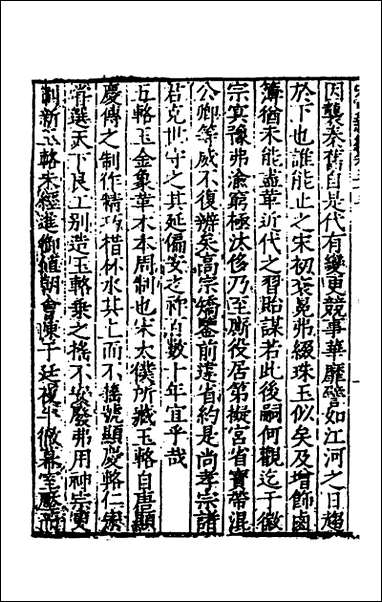 因襲秦舊自是代有變更競事華靡譬如江河之日趨
於下也誰能止之宋初袞冕弗綴珠玉似矣及增飾鹵
簿猶未能盡革近代之習貽謀若此後嗣何觀迄于徽
宗寘豫弗渝窮極汰侈乃至廝役居第擬宮省寶帶混
公卿等威不復辨矣高宗矯鑒前違省約是尚孝宗諸
君克世守之其延偏安之祚百數十年宜乎哉
五輅玉金象革木本周制也宋太僕所藏玉輅自唐顯
慶傳之制作精巧楷杯水其上而不搖號顯慶輅仁宗
嘗選天下良工別造玉輅乘之搖不安廢弗用神宗更
制新玉輅未經進御值朝會陳于廷視平徹幕室壓而